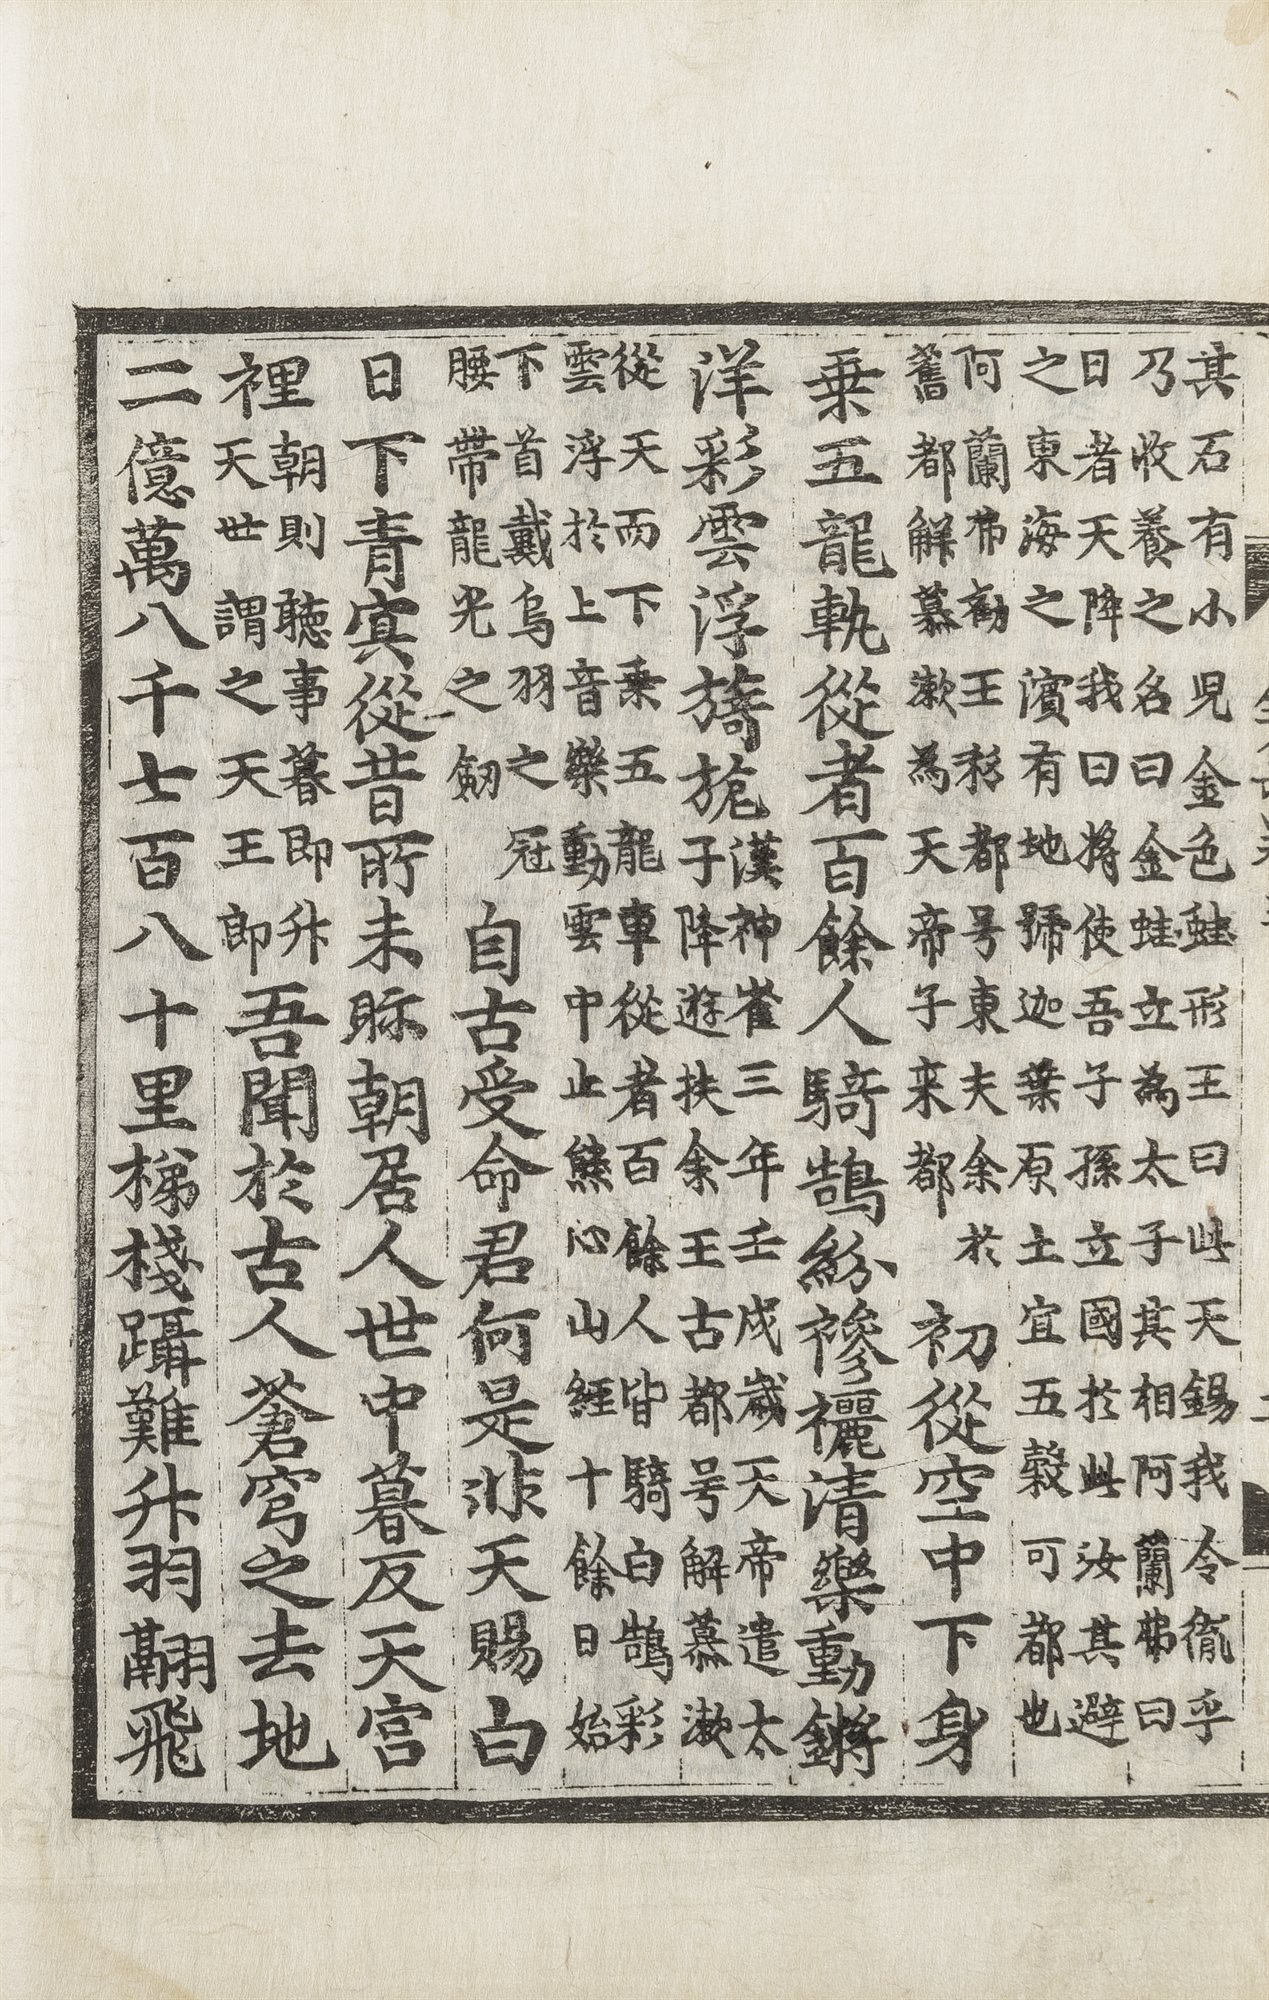 其石有小児金色蛙形王曰此天錫我令胤乎
乃收養之名曰金蛙立為太子其相阿蘭弗曰
日者天降我曰将使吾子孫立國於此汝其避
之東海之濱有地號迦葉原土宜五穀可都也
阿蘭弗勸王移都号東夫余於
舊都解慕漱為天帝子来都
初從空中下身
乗五龍軌從者百餘人騎鵠紛襂襹清樂動鏘
洋彩雲浮旖旎
漢神雀三年壬戌歲天帝遣太
子降遊扶余王古都号解慕漱
從天而下乗五龍車從者百餘人皆騎白鵠彩
雲浮於上音樂動雲中止熊心山經十餘日始
下首戴烏羽之冠
腰帶龍光之劒
自古受命君何是非天賜白
日下青㝠從昔所未眎朝居人世中暮反天宮
裡
朝則聴事暮即升
天世謂之天王郎
吾聞於古人蒼穹之去地
二億萬八千七百八十里梯棧躡難升羽翮飛